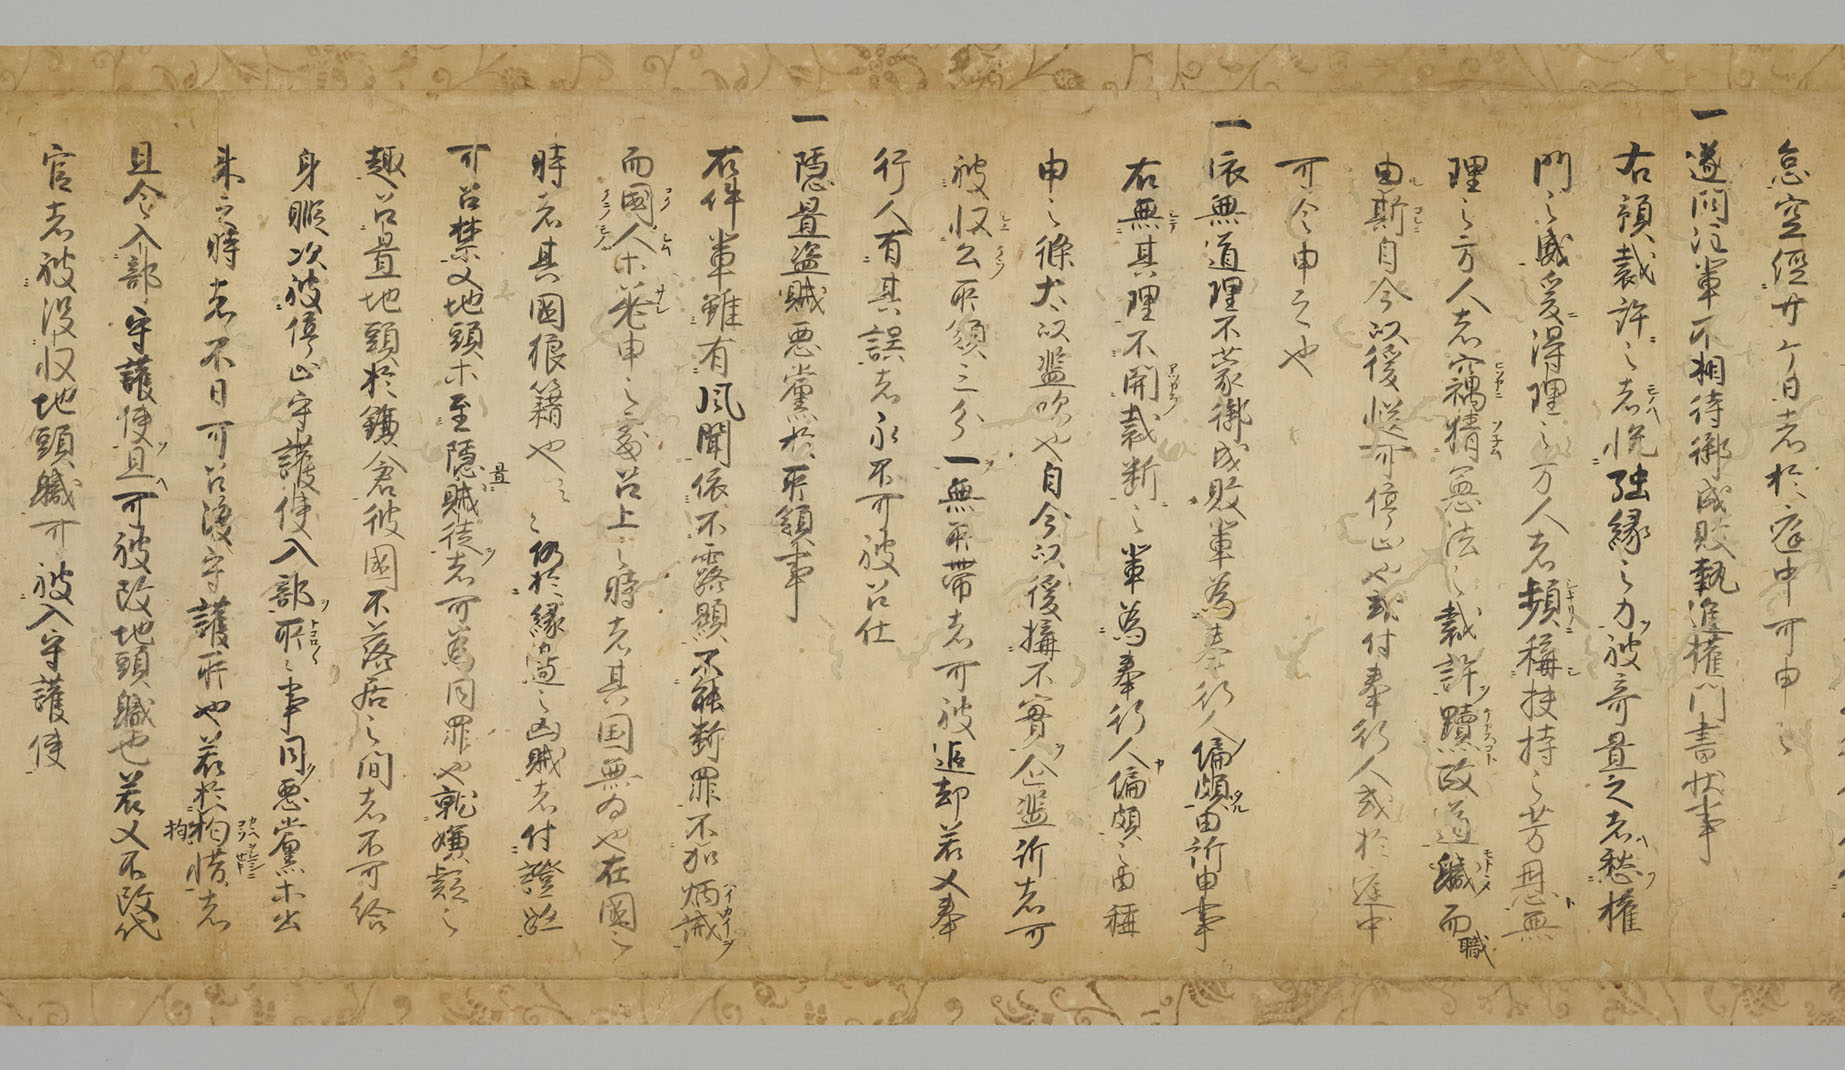 怠空經廿ケ日者於庭中可申之
一遂問注輩不相待御成敗執進權門書状事
右預裁許之者悦強縁之力被寄置之者愁權
門之威爰得理之方人者頻稱扶持之芳恩無
理之方人者竊猜憲法之裁許黷政道職而
由斯自今以後慥可停止也或付奉行人或於庭中
可令申之也
一依無道理不蒙御成敗輩為奉行人偏頗由訴申事
右無其理不関裁断之輩為奉行人偏頗之由稱
申之條太以濫吹也自今以後搆不實企濫訴者可
被収公所領三分一無所帯者可被追却若又奉
行人有其誤者永不可被召仕
一隠置盗賊悪黨於所領事
右件輩雖有風聞依不露顯不能断罪不加炳誡
而國人等差申之處召上之時者其国無為也在國之
時者其國狼籍也云々仍於縁邊之凶賊者付證跡
可召禁又地頭等至隠置賊徒者可為同罪也就嫌疑之
趣召置地頭於鎌倉彼國不落居之間者不可給
身暇次被停止守護使入部所々事同悪黨等出
来之時者不日可召渡守護所也若於拘惜者
且令入部守護使且可被改地頭職也若又不改代
官者被没収地頭職可被入守護使